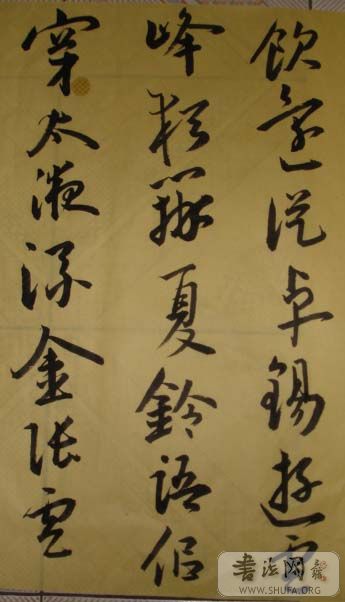 飲從卓錫遊
峰夏鈴語侶
穿太液深金張雲
书法网
WWW.SHUFA.ORG